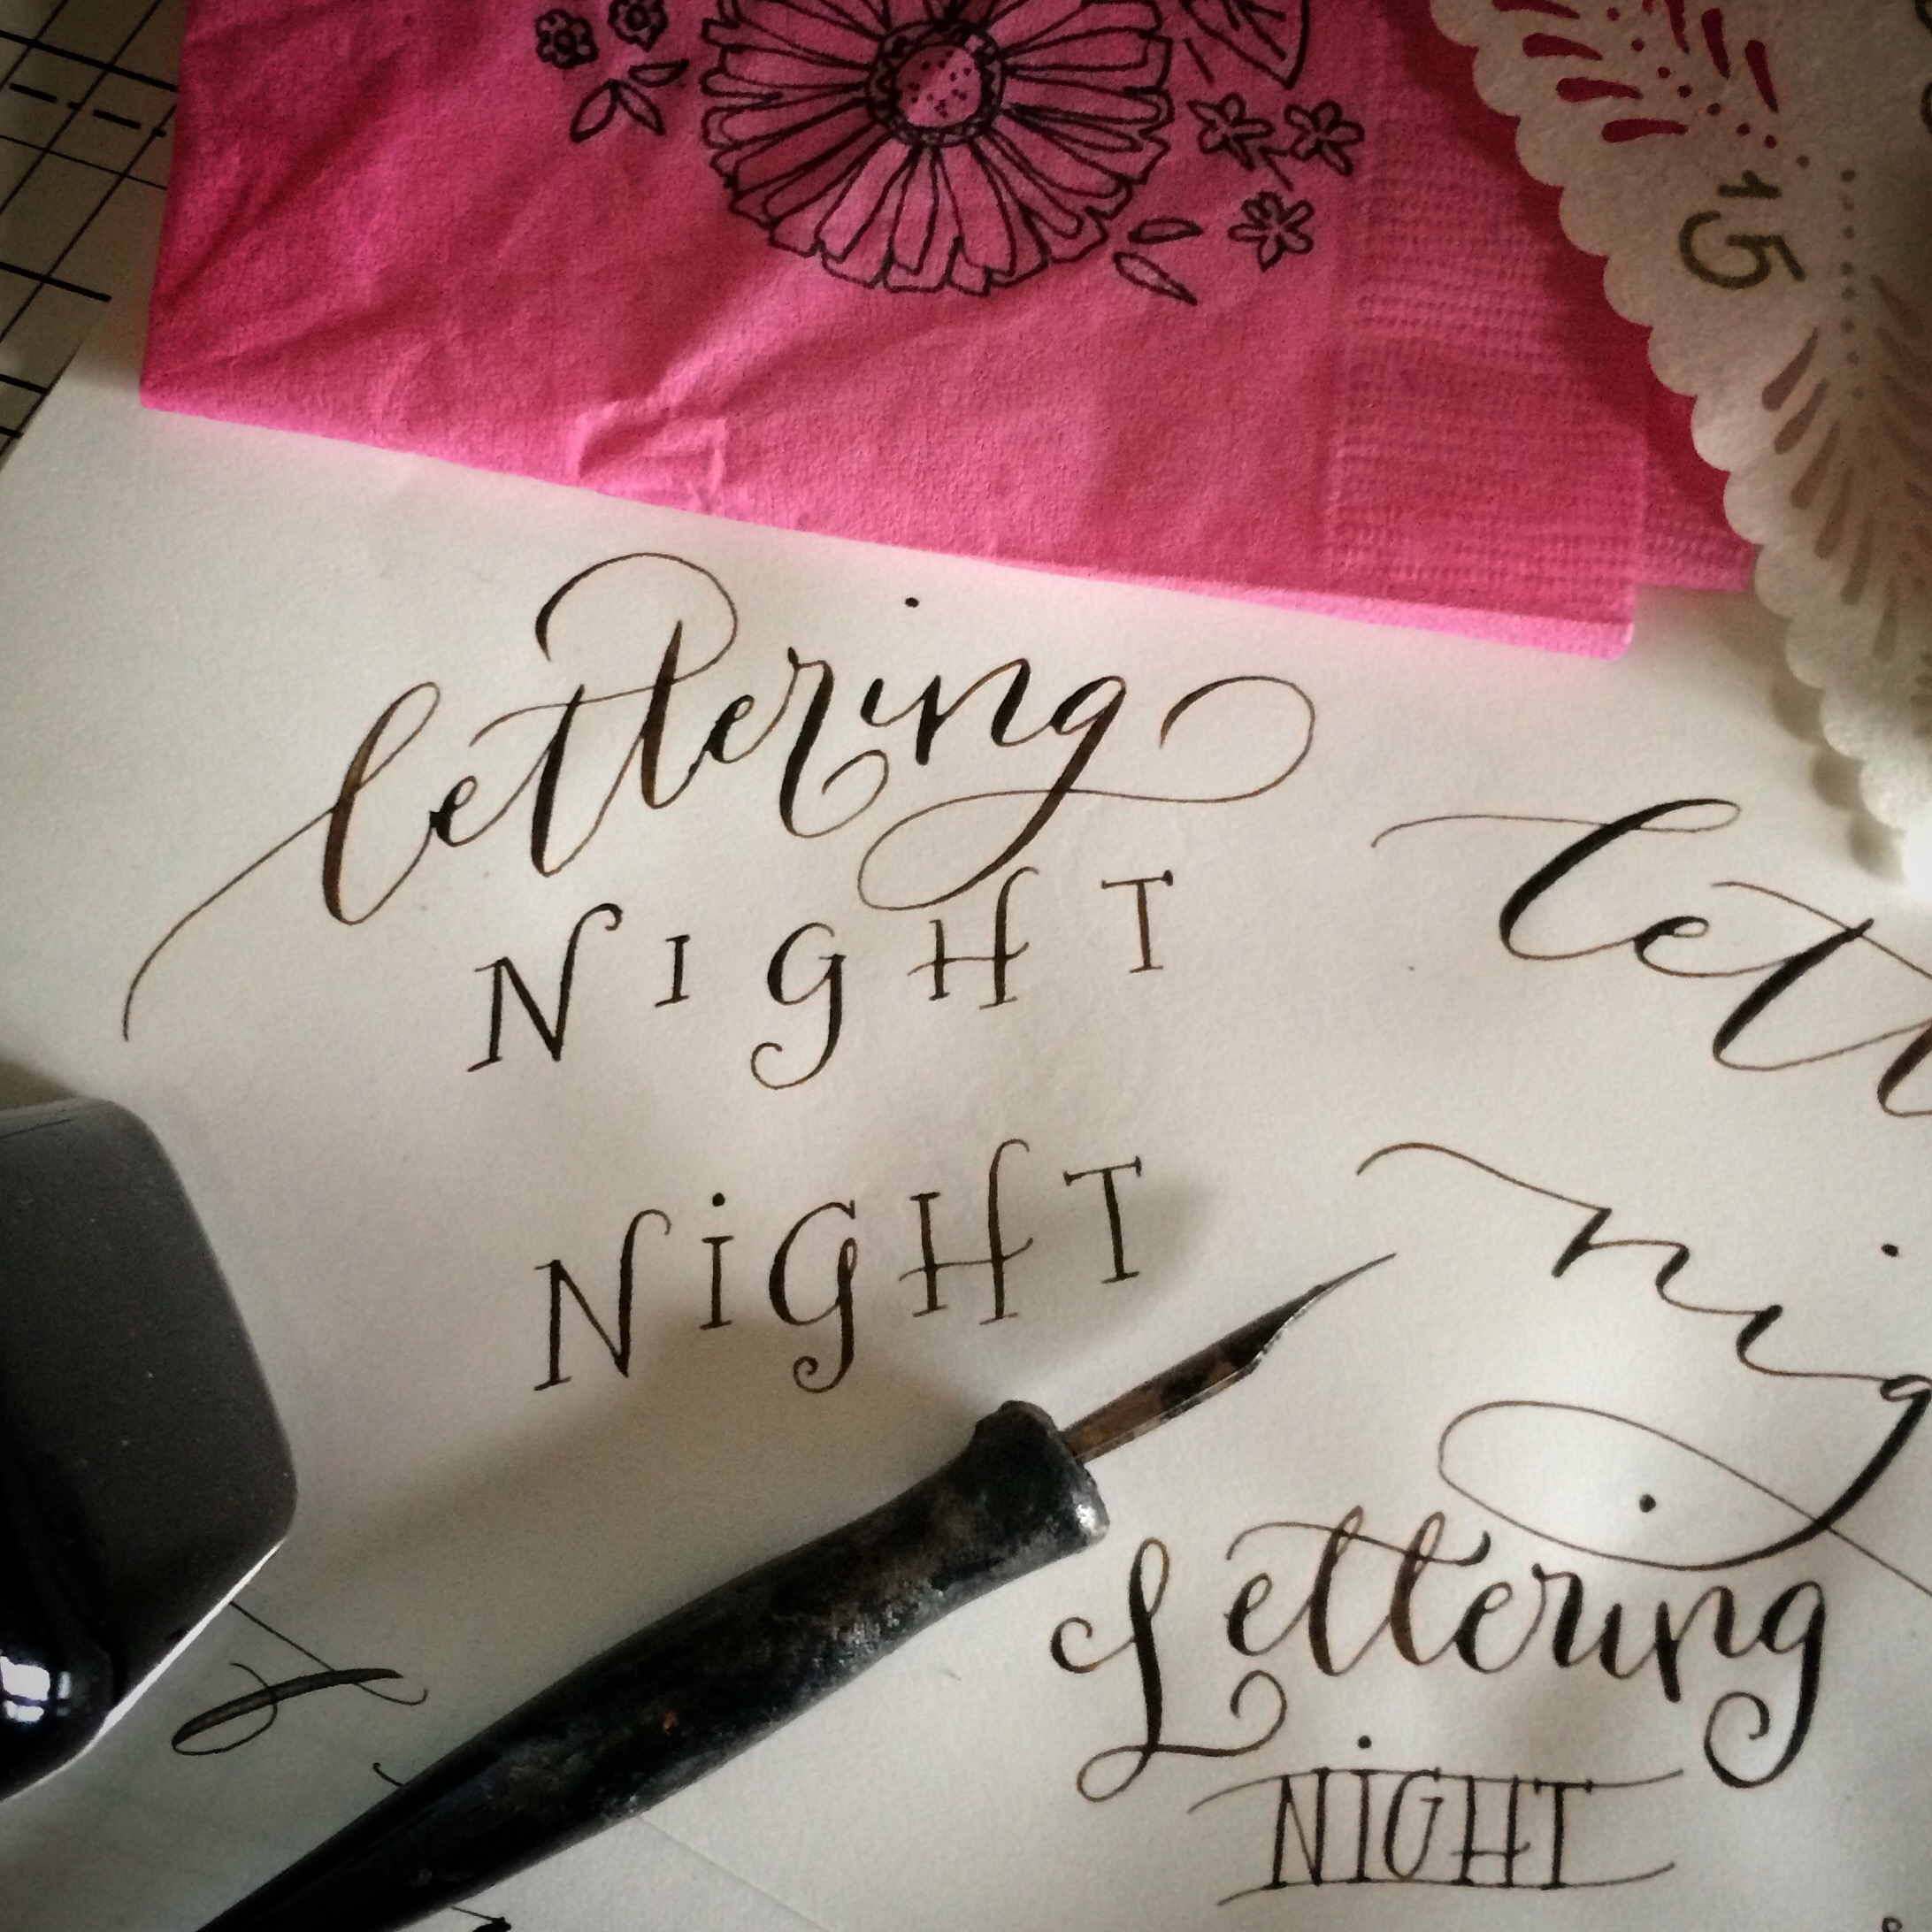 15
lettering
NIGHT
NiGHT
Lettering
NiGHT